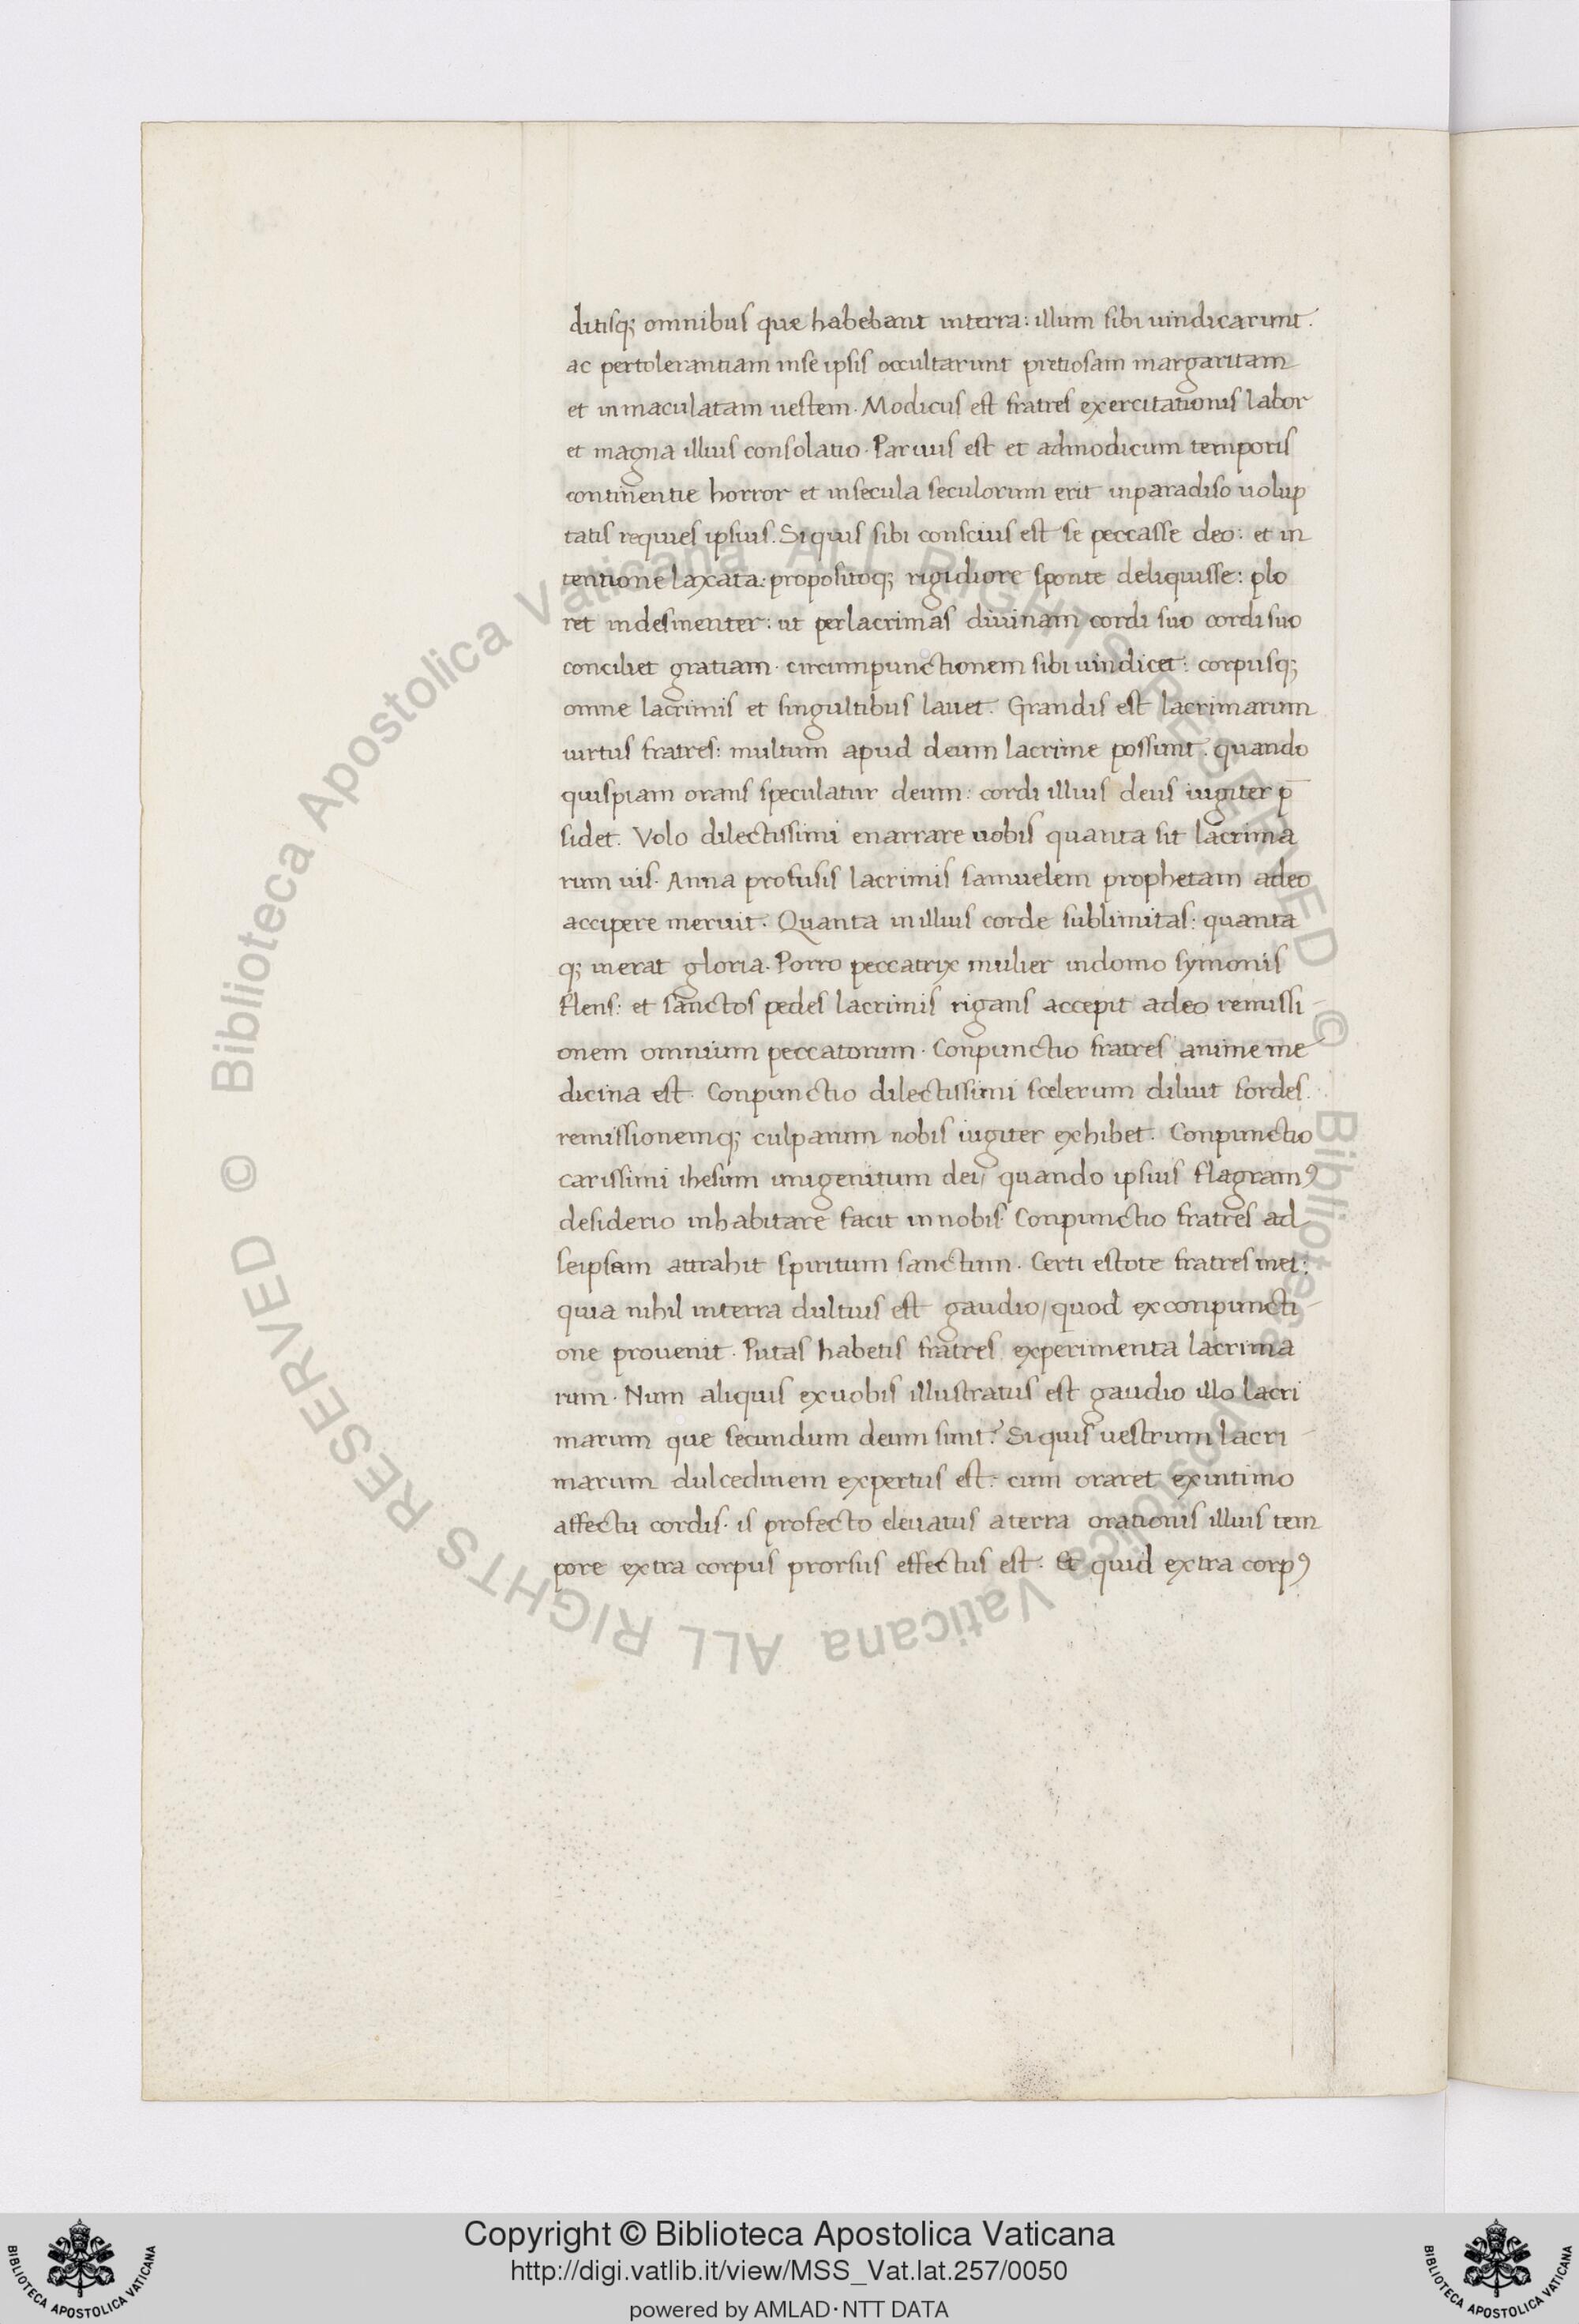 ditisq; omnibus que habebant interra: illum sibi uindicarunt.
ac pertolerantiam inse ipsis occultarunt pretiosam margaritam
et inmaculatam uestem. Modicus est fratres exercitationis labor
et magna illius consolatio. Paruus est et admodicum temporis
continentie horror et insecula seculorum erit inparadiso uolup
tatis requies ipsius. Siquis sibi conscius est se peccasse deo: et in
tentione laxata: propositoq; rigidiore sponte deliquisse: plo
ret indesinenter: ut perlacrimas diuinam cordi suo cordi suo
conciliet gratiam. circumpunctionem sibi uindicet: corpusq;
omne lacrimis et singultibus lauet. Grandis est lacrimarum
uirtus fratres: multum apud deum lacrime possunt. quando
quispiam orans speculatur deum: cordi illius deus iugiter p̄
sidet. Volo dilectissimi enarrare uobis quanta sit lacrima
rum uis. Anna profusis lacrimis samuelem prophetam adeo
accipere meruit. Quanta inillius corde sublimitas: quanta
q; inerat gloria. Porro peccatrix mulier indomo symonis
flens: et sanctos pedes lacrimis rigans accepit adeo remissi-
onem omnium peccatorum. Conpunctio fratres anime me
dicina est. Conpunctio dilectissimi scelerum diluit sordes.
remissionemq; culparum nobis iugiter exhibet. Conpunctio
carissimi ihesum unigenitum dei/ quando ipsius flagramꝰ
desiderio inhabitare facit innobis. Conpunctio fratres ad
seipsam attrahit spiritum sanctum. Certi estote fratres mei:
quia nihil interra dultius est gaudio/ quod exconpuncti-
one prouenit. Putas habetis fratres experimenta lacrima
rum. Num aliquis exuobis illustratus est gaudio illo lacri
marum que secundum deum sunt? Siquis uestrum lacri-
marum dulcedinem expertus est: cum oraret exintimo
affectu cordis. is profecto eleuatus aterra orationis illius tem
pore extra corpus prorsus effectus est. Et quid extra corpꝰ
© Biblioteca Apostolica Vaticana ALL RIGHTS RESERVED © Biblioteca Apostolica Vaticana ALL RIGHTS RESERVED
Copyright © Biblioteca Apostolica Vaticana
http://digi.vatlib.it/view/MSS_Vat.lat.257/0050
powered by AMLAD·NTT DATA
BIBLIOTECA APOSTOLICA VATICANA
BIBLIOTECA APOSTOLICA VATICANA